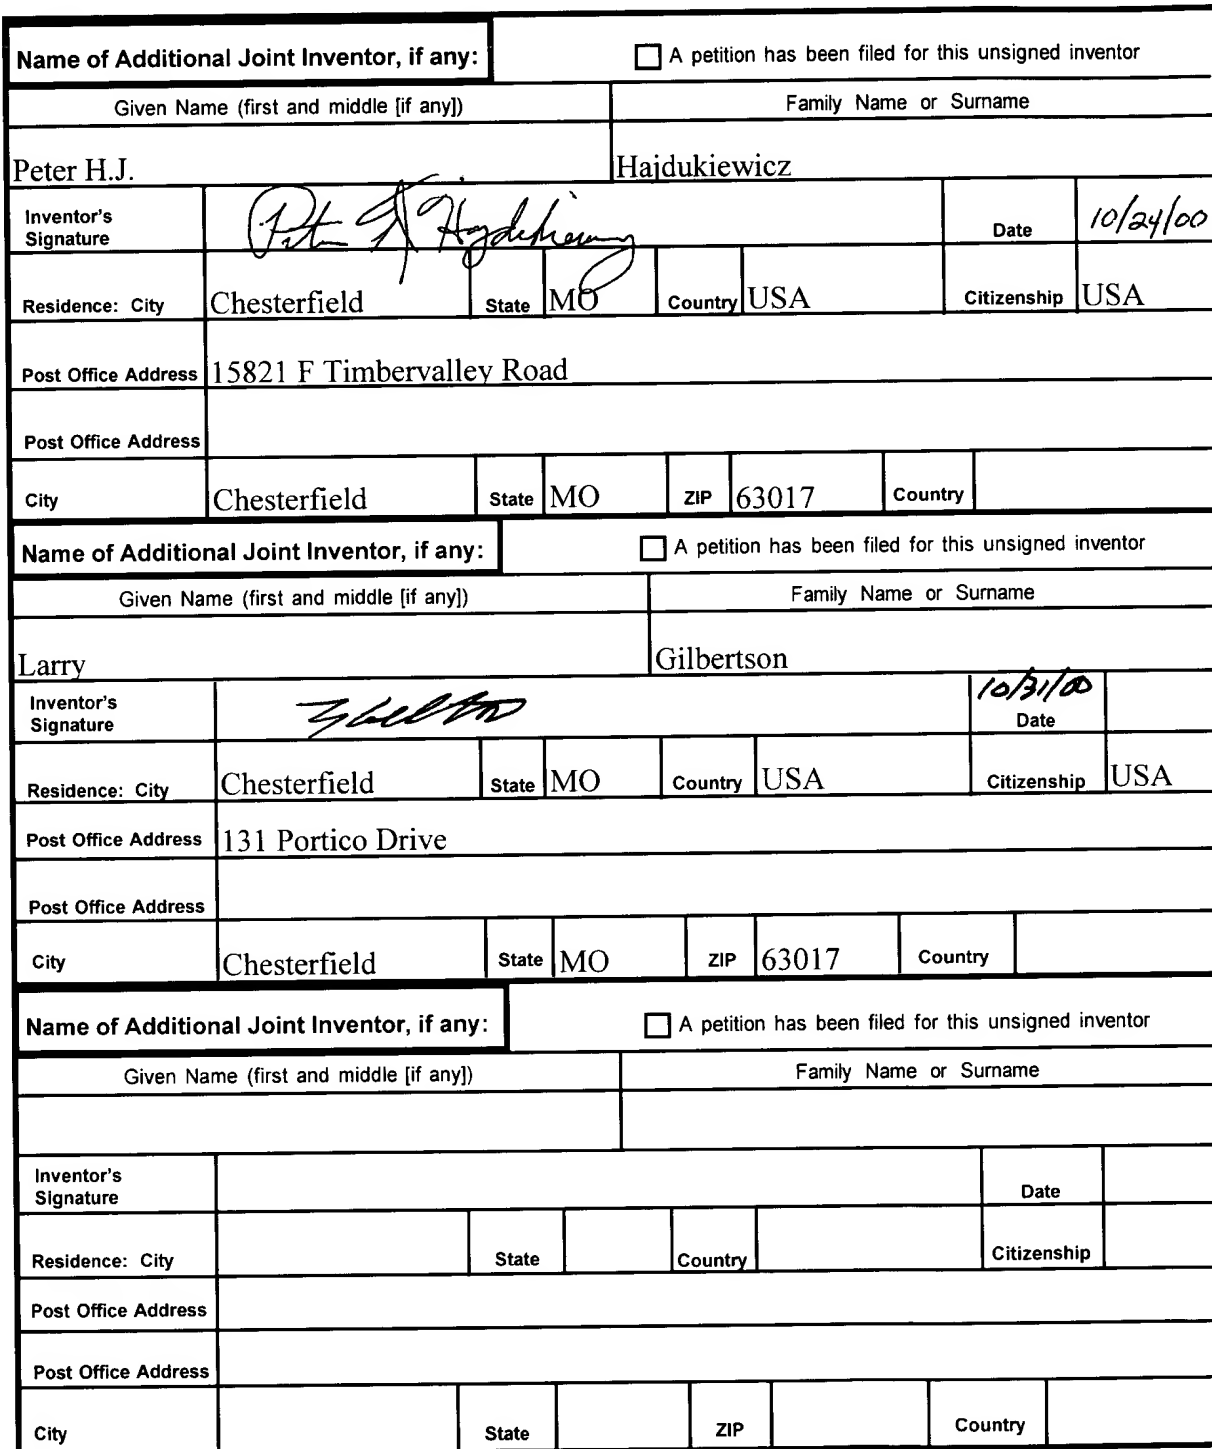 Name of Additional Joint Inventor, if any: A petition has been filed for this unsigned inventor
Given Name (first and middle [if any]) Family Name or Surname
Peter H.J. Hajdukiewicz
Inventor's Signature Peter H Hajdukiewicz Date 10/24/00
Residence: City Chesterfield State MO Country USA Citizenship USA
Post Office Address 15821 F Timbervalley Road
Post Office Address
City Chesterfield State MO ZIP 63017 Country
Name of Additional Joint Inventor, if any: A petition has been filed for this unsigned inventor
Given Name (first and middle [if any]) Family Name or Surname
Larry Gilbertson
Inventor's Signature 10/31/00 Date
Residence: City Chesterfield State MO Country USA Citizenship USA
Post Office Address 131 Portico Drive
Post Office Address
City Chesterfield State MO ZIP 63017 Country
Name of Additional Joint Inventor, if any: A petition has been filed for this unsigned inventor
Given Name (first and middle [if any]) Family Name or Surname
Inventor's Signature Date
Residence: City State Country Citizenship
Post Office Address
Post Office Address
City State ZIP Country